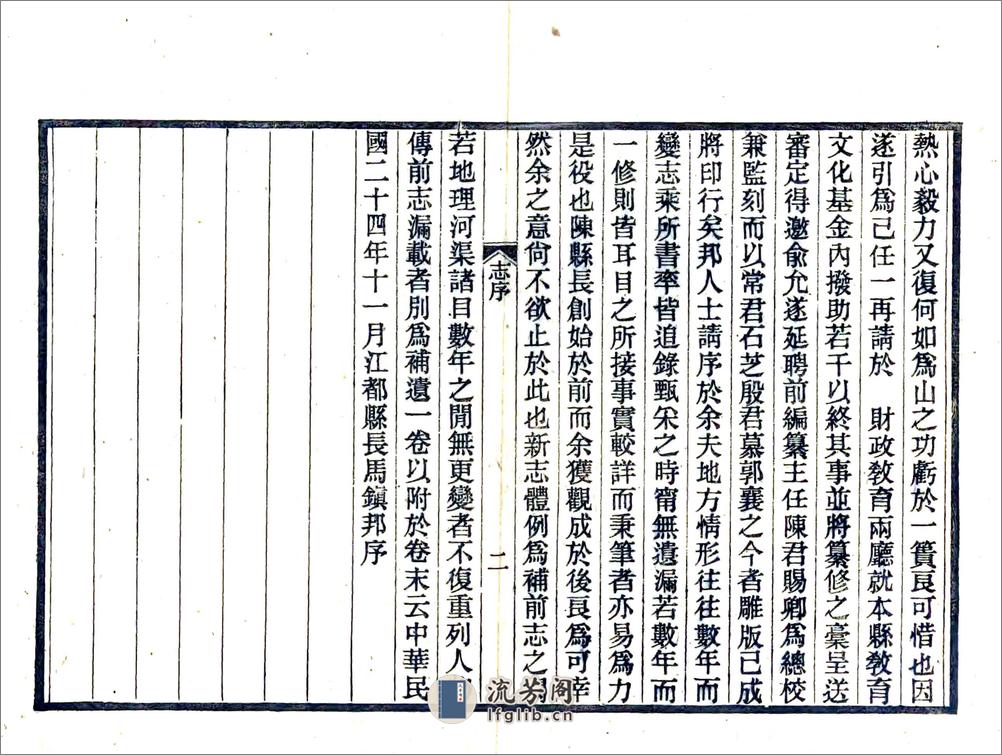 熱心毅力又復何如爲山之功虧於一簣良可惜也因
遂引爲己任一再請於　財政敎育兩廳就本縣敎育
文化基金內撥助若干以終其事並將纂修之藁呈送
審定得邀俞允遂延聘前編纂主任陳君賜卿爲總校
兼監刻而以常君石芝殷君慕郭襄之今者雕版已成
將印行矣邦人士請序於余夫地方情形往往數年而
變志乘所書率皆追錄甄采之時甯無遺漏若數年而
一修則皆耳目之所接事實較詳而秉筆者亦易爲力
是役也陳縣長創始於前而余獲觀成於後良爲可幸
然余之意尙不欲止於此也新志體例爲補前志之
志序
二
若地理河渠諸目數年之閒無更變者不復重列人
傳前志漏載者別爲補遺一卷以附於卷末云中華民
國二十四年十一月江都縣長馬鎮邦序
流芳阁
lfglib.cn